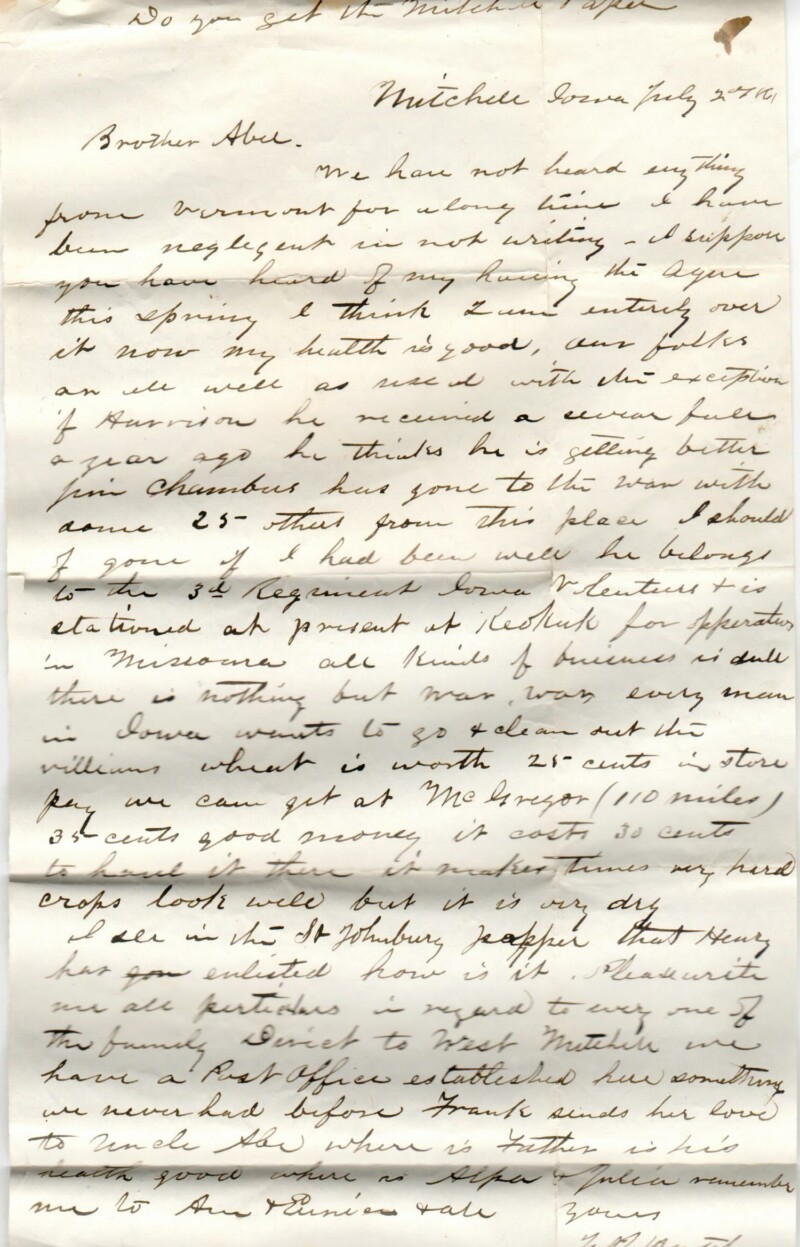 Do you get the Mitchell Paper
Mitchell Iowa July 2nd 61
Brother Abel.
We have not heard enything
from Vermont for along time I have
been neglegent in not writing - I suppose
you have heard of my having the Ague
this spring I think I am entirely over
it now my health is good, our folks
are all well as usual with the exception
of Harrison he received a sevear fall
a year ago he thinks he is getting better
Jim Chambers has gone to the war with
some 25 others from this place I should
of gone if I had been well he belongs
to the 3d Regiment Iowa Volenteers & is
stationed at present at Keokuk for opperations
in Missoura all kinds of buisness is dull
there is nothing but war, war every man
in Iowa wants to go & clean out the
villians wheat is worth 25 cents in store
pay we can get at McGregor (110 miles)
35 cents good money it costs 30 cents
to haul it there it makes times very hard
crops look well but it is very dry
I see in the St Johnbury papper that Henry
has enlisted how is it. Please write
me all perticulars in regard to every one of
the family Direct to West Mitchell we
have a Post Office established here something
we never had before Frank sends her love
to Uncle Abe where is Father is his
health good where is & Julia remember
me to Ann & Eunice & all yours